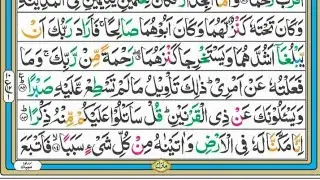 اَقْرَبَ رُحْمًا ۝ وَاَمَّا الْجِدَارُ فَكَانَ لِغُلٰمَيْنِ يَتِيْمَيْنِ فِي الْمَدِيْنَةِ
وَكَانَ تَحْتَهٗ كَنْزٌ لَّهُمَا وَكَانَ اَبُوْهُمَا صَالِحًا ۚ فَاَرَادَ رَبُّكَ اَنْ
يَّبْلُغَاۤ اَشُدَّهُمَا وَيَسْتَخْرِجَا كَنْزَهُمَا ۖ رَحْمَةً مِّنْ رَّبِّكَ ۚ وَمَا
فَعَلْتُهٗ عَنْ اَمْرِيْ ؕ ذٰلِكَ تَاْوِيْلُ مَا لَمْ تَسْطِعْ عَّلَيْهِ صَبْرًا ۝
وَيَسْـَٔلُوْنَكَ عَنْ ذِي الْقَرْنَيْنِ ؕ قُلْ سَاَتْلُوْا عَلَيْكُمْ مِّنْهُ ذِكْرًا ۝
اِنَّا مَكَّنَّا لَهٗ فِي الْاَرْضِ وَاٰتَيْنٰهُ مِنْ كُلِّ شَيْءٍ سَبَبًا ۝ فَاَتْبَعَ